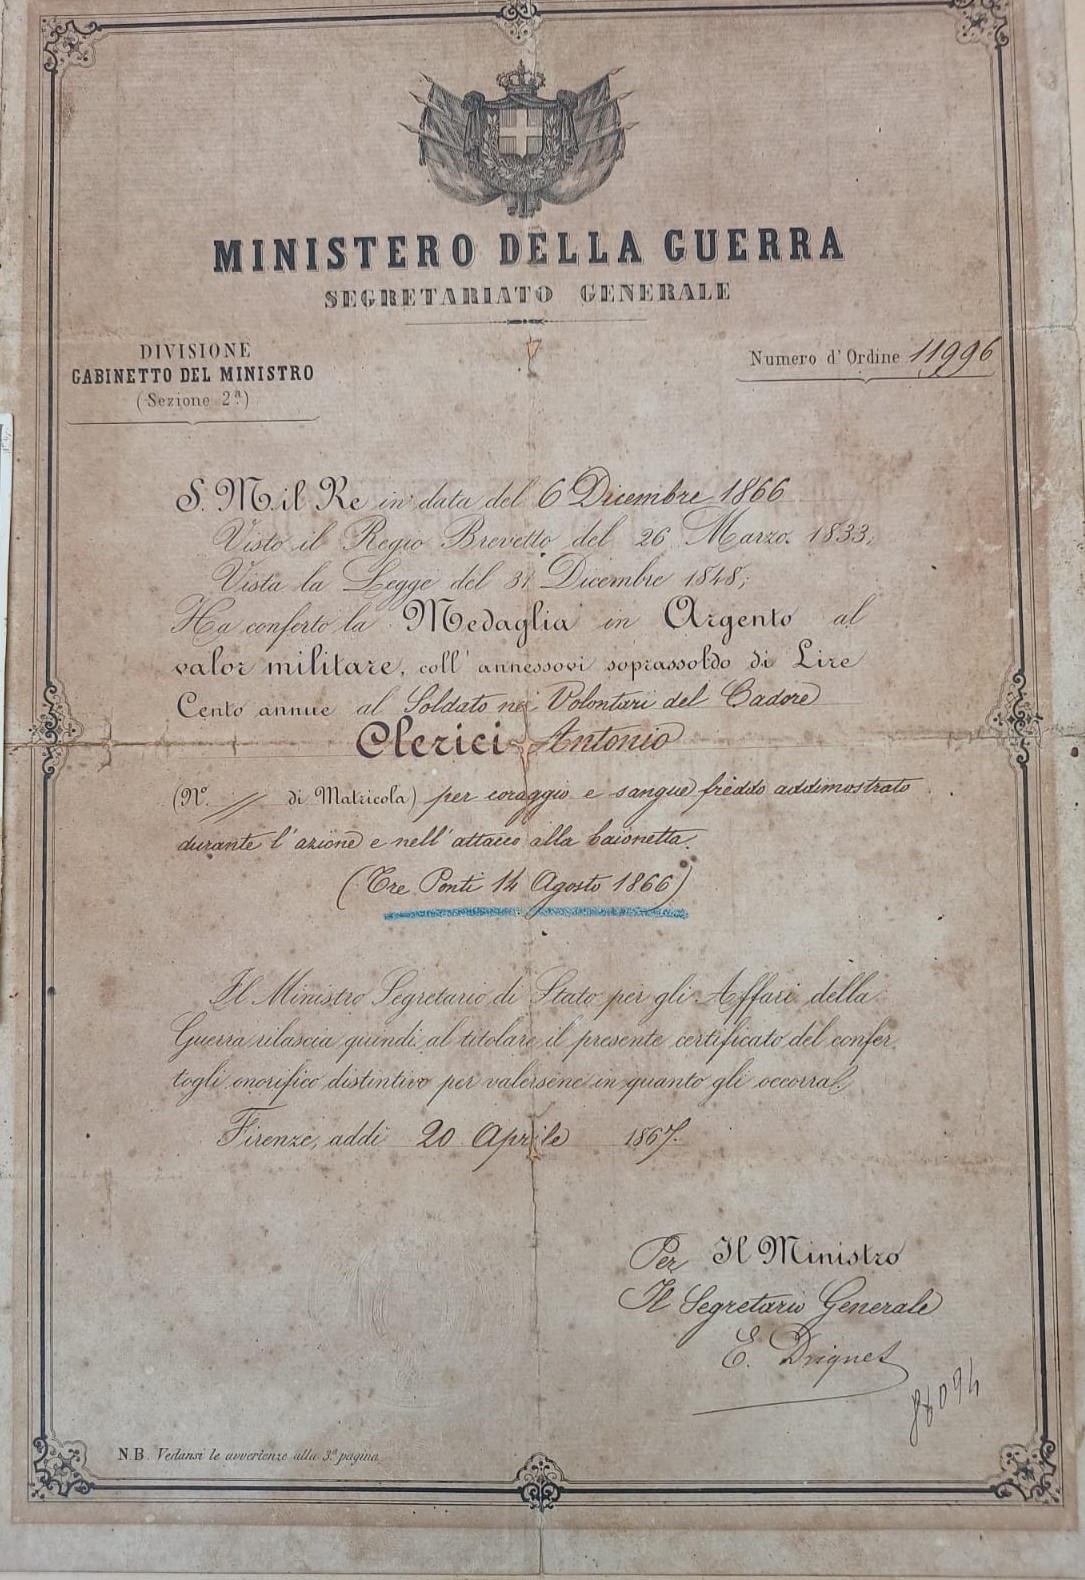 MINISTERO DELLA GUERRA
SEGRETARIATO GENERALE
DIVISIONE
GABINETTO DEL MINISTRO
(Sezione 2ª)
Numero d'Ordine 11996
S. M. il Re in data del 6 Dicembre 1866
Visto il Regio Brevetto del 26 Marzo 1833;
Vista la Legge del 31 Dicembre 1848;
Ha conferto la Medaglia in Argento al
valor militare, coll' annessovi soprassoldo di Lire
Cento annue al Soldato nei Volontari del Cadore
Clerici Antonio
(Nº. // di Matricola) per coraggio e sangue freddo addimostrato
durante l'azione e nell'attacco alla baionetta.
(Tre Ponti 14 Agosto 1866)
Il Ministro Segretario di Stato per gli Affari della
Guerra rilascia quindi al titolare il presente certificato del confer
togli onorifico distintivo per valersene in quanto gli occorra.
Firenze, addì 20 Aprile 1867.
Per Il Ministro
Il Segretario Generale
E. Driquet
86094
N.B. Vedansi le avvertenze alla 3ª pagina